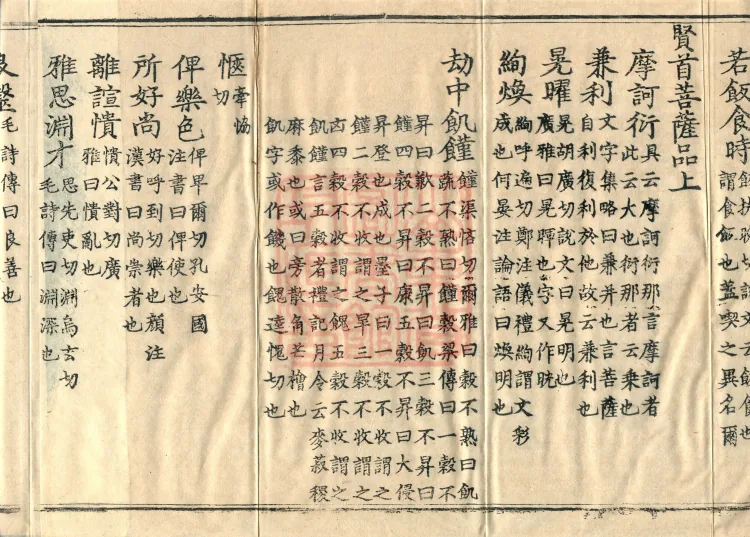 若飯食時
謂食飯也蓋喫之異名爾
賢首菩薩品上
摩訶衍 具云摩訶衍那言摩訶者
此云大也衍那者云乘也
兼利 文字集略曰兼并也言菩薩
自利復利於他故云兼利也
晃曜 晃胡廣切說文曰晃明也
廣雅曰晃暉也字又作晄
絢煥 絢呼遍切鄭注儀禮絢謂文彩
成也何晏注論語曰煥明也
劫中飢饉 饉渠恡切爾雅曰穀不熟曰飢
蔬不熟曰饉穀梁傳曰一穀不
昇曰歉二穀不昇曰飢三穀不昇曰
饉四穀不昇曰康五穀不昇曰大侵
昇登也成也墨子曰一穀不收謂之
饉二穀不收謂之旱三穀不收謂之
㐫四穀不收謂之餽五穀不收謂之
飢饉言五穀者禮記月令云麥菽稷
麻黍也或曰旁散角芒檜也
飢字或作饑也餽逵愧切也
愜 牽恊
切
俾樂色 俾卑爾切孔安國
注書曰俾使也
所好尚 好呼到切樂也顏注
漢書曰尚崇者也
離諠憒 憒公對切廣
雅曰憒亂也
雅思淵才 思先吏切淵烏玄切
毛詩傳曰淵深也
良毉 毛詩傳曰良善也